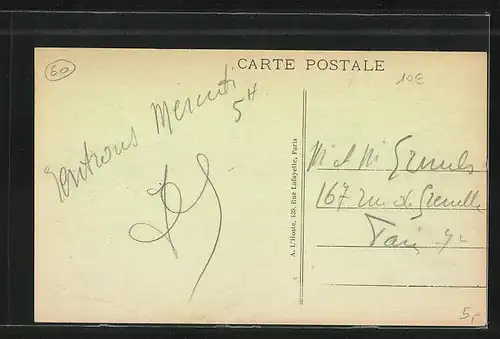 60
CARTE POSTALE
10€
Rentrons Mercredi
5H
A. L'Hoste, 123, Rue Lafayette, Paris
M et M
167 rue de Grenelle
Paris 7e
5,-